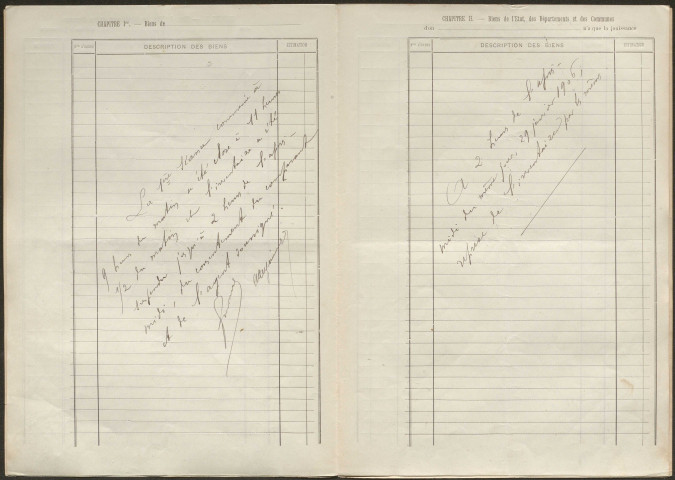 CHAPITRE Ier. — Biens de
DESCRIPTION DES BIENS
ESTIMATION
La 1re séance commencée à
9 heures du matin a été close à 11 heures
1/2 du matin et l'inventaire a été
suspendu jusqu'à 2 heures de l'après-
midi, du consentement des comparants
et de l'agent soussigné.
CHAPITRE II. — Biens de l'Etat, des Départements et des Communes
dont n'a que la jouissance
DESCRIPTION DES BIENS
ESTIMATION
A 2 heures de l'après-
midi du même jour, 29 janvier 1906,
reprise de l'inventaire par les mêmes.